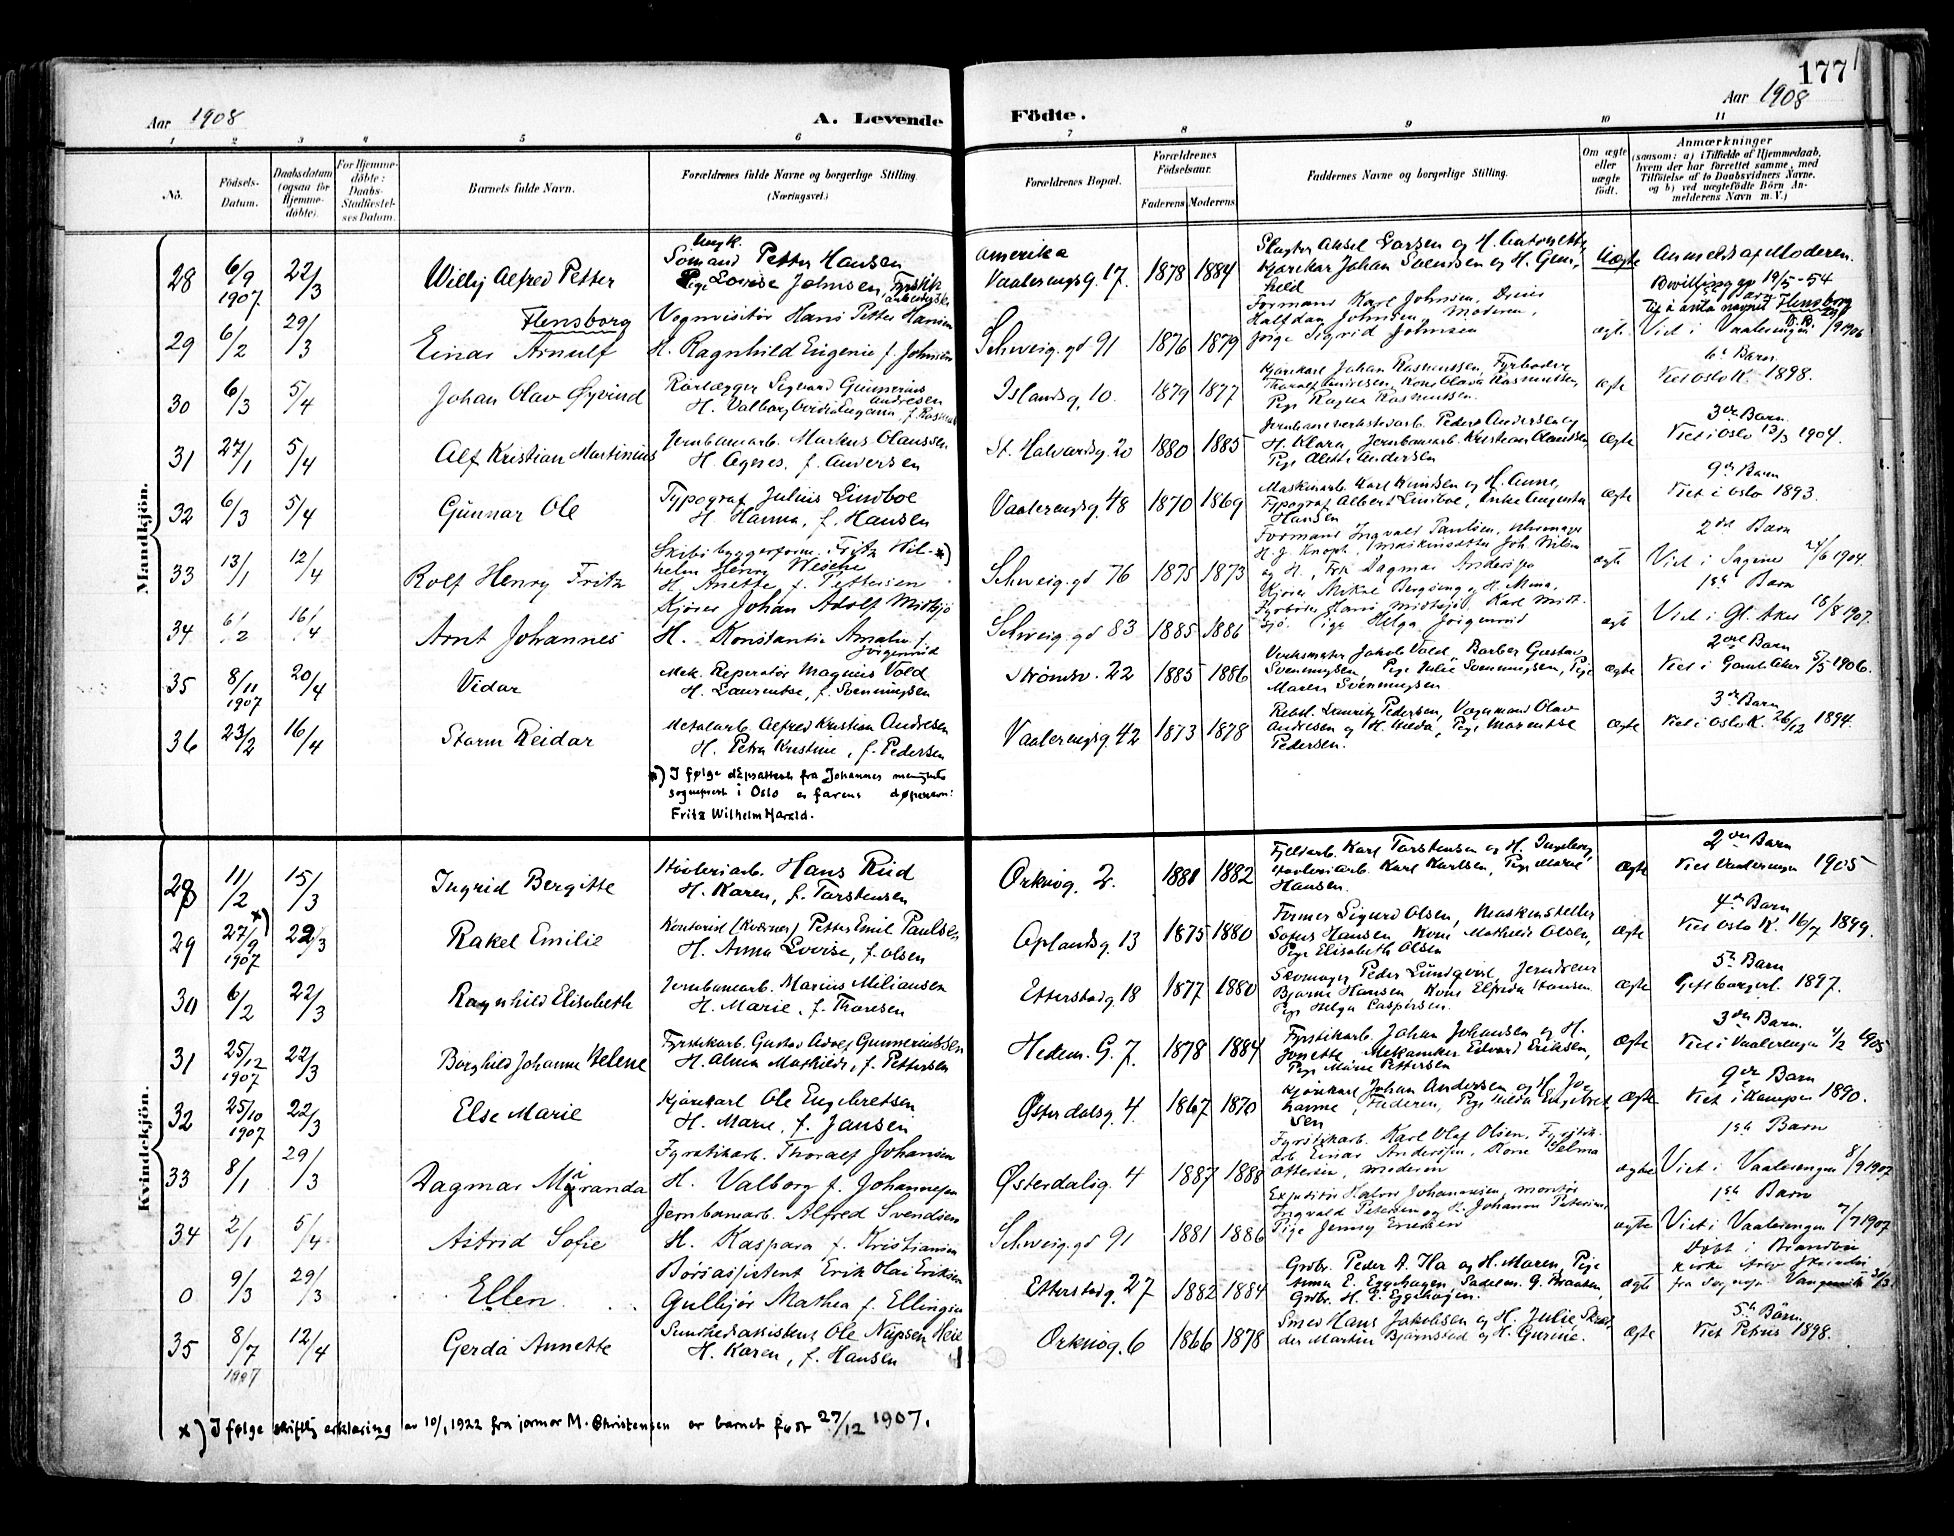 177
Aar 1908
A. Levende Födte.
Aar 1908
1 2 3 4 5 6 7 8 9 10 11
No.
Födsels-Datum.
Daabsdatum (ogsaa for Hjemme-döbte).
For Hjemme-döbte: Daabs-Stadfæstel-ses Datum.
Barnets fulde Navn.
Forældrenes fulde Navne og borgerlige Stilling. (Næringsvei.)
Forældrenes Bopæl.
Forældrenes Födselsaar.
Faderens Moderens
Faddernes Navne og borgerlige Stilling.
Om ægte eller uægte födt.
Anmærkninger
(saasom: a) i Tilfælde af Hjemmedaab, hvem der har forrettet samme, med Tilföielse af to Daabsvidners Navne, og b) ved uægtefödte Börn An-melderens Navn m. V.)
Mandkjön.
28 6/9 1907 22/3 Willy Alfred Petter
Ungk. Sömand Petter Hansen
Pige Lovise Johnsen, Fyrstik arbeiderske
Amerika
Vaalerengsg. 17. 1878 1884
Slagter Aksel Larsen og H.
Kjørekar Johan Svendsen og H.
Uægte Anmeldt af Moderen.
Bevilling 19/5-54 til å anta navnet Flensborg
29 6/2 29/3 Einar Arnulf Flensborg
Vognvisitør Hans Petter Hansen
H. Ragnhild Eugenie f. Johnsen
Schweig.gd 91 1876 1879
Formand Karl Johnsen,
Halfdan Johnsen, Moderen,
Pige Sigrid Johnsen
ægte Viet i Vaalerengen 1906
30 6/3 5/4 Johan Olav Øyvind
Rørlægger Sigvard Gunnerius Andresen
H. Valborg
Islandsg. 10. 1879 1877
Kjørekarl Johan Rasmussen, Fyrbøder
Kone Olava Rasmussen,
Pige Ragna Rasmussen
ægte 6te Barn.
Viet Oslo K. 1898.
31 27/1 5/4 Alf Kristian Martinius
Jernbanearb. Markus Olaussen
H. Agnes, f. Andersen
St. Halvardsg. 20 1880 1885
Jernbaneverkstedarb. Peder Andersen og
H. Klara, Jernbanearb. Kristian Olaussen
Pige Andersen
ægte 3die Barn.
Viet i Oslo 13/3 1904.
32 6/3 5/4 Gunnar Ole
Typograf Julius Lindboe
H. Hanna, f. Hansen
Vaalerengsg. 48 1870 1869
Maskinarb. Karl Knudsen og H. Anne,
Typograf Albert Lindboe, Enke Augusta
Hansen
ægte 9de Barn
Viet i Oslo 1893.
33 13/1 12/4 Rolf Henry Fritz
Skibsbyggerform. Fritz Wil-x)
helm Henry Wesche
H. Anette f. Pettersen
Schweig.gd 76 1875 1873
Formand Ingvald Paulsen, Uhrmager
H. J. Knoph, Maskinsætter Joh. Nilsen
og H., Frk Dagmar Andersen
ægte 2det Barn
Viet i Sagene 24/6 1904.
34 6/2 16/4 Arnt Johannes
Kjører Johan Adolf Midtsjø
H. Konstantia Amalie f.
Jörgenrud
Schweig.gd 83 1885 1886
Kjører Mikal Bergseng og H. Mina,
Fyrbøter Hans Midtsjø, Karl Midt-
sjø, Pige Helga Jörgenrud
ægte 1ste Barn
Viet i Gl. Aker 18/8 1907.
35 8/11 1907 20/4 Vidar
Mek. Reperatør Magnus Vold
H. Laurentse, f. Svenningsen
Strömsv. 22 1885 1886
Verksmester Jakob Vold, Barber Gustav
Svenningsen, Pige Julie Svenningsen, Pige
Maren Svenningsen
ægte 2det Barn
Viet i Gamle Aker 5/5 1906.
36 23/2 16/4 Storm Reidar
Metalarb. Alfred Kristian Andresen
H. Petra Kristine, f. Pedersen
Vaalerengsg. 42 1873 1878
Rebsl. Lauritz Pedersen, Vognmand Olav
Andresen og H. Hilda, Pige Marentse
Pedersen.
ægte 3die Barn
Viet i Oslo K. 26/12 1894.
x) I følge dåpsattest fra Johannes menighets
sogneprest i Oslo er farens døpenavn:
Fritz Wilhelm Harald.
Kvindekjön.
28 11/2 15/3 Ingrid Bergitte
Høvleriarb. Hans Rud
H. Karen, f. Torstensen
Orknög. 2. 1881 1882
Fjeldarb. Karl Torstensen og H. Ingeborg,
Høvleriarb. Karl Karlsen, Pige Marie
Hansen.
ægte 2det Barn
Viet Vaalerengen 1905
29 27/9 x) 1907 22/3 Rakel Emilie
Kontorist (Kværner) Petter Emil Paulsen
H. Anna Lovise, f. Olsen
Oplandsg. 13 1875 1880
Former Sigurd Olsen, Maskinsteller
Sofus Hansen, Kone Mathilde Olsen,
Pige Elisabeth Olsen
ægte 4de Barn
Viet Oslo K. 16/7 1899.
30 6/2 22/3 Ragnhild Elisabeth
Jernbanearb. Marius Miliansen
H. Marie, f. Thoresen
Etterstadg. 18 1877 1880
Skomager Peder Lundqvist,
Bjarne Hansen, Kone Elfrida Hansen
Pige Helga Caspersen.
ægte 5te Barn
Gift borgerl. 1897.
31 25/12 1907 22/3 Borghild Johanne Helene
Fyrstikarb. Gustav Adolf Gunneriussen
H. Alma Mathilde, f. Pettersen
Hedem. G. 7. 1878 1884
Fyrstikarb. Johan Johansen og H.
Josette, Mekaniker Edvard Eriksen,
Pige Marie Pettersen
ægte 3die Barn.
Viet i Vaalerengen 4/2 1905
32 25/10 1907 22/3 Else Marie
Kjørekarl Ole Engebretsen
H. Marie, f. Jansen
Østerdalsg. 4. 1867 1870
Kjørekarl Johan Andersen og H. Jo-
hanne, Faderen, Pige Hilda Engebret-
sen
ægte 9de Barn
Viet i Kampen 1890.
33 8/1 29/3 Dagmar Miranda
Fyrstikarb. Thoralf Johansen
H. Valborg f. Johannesen
Østerdalsg. 4 1887 1888
Fyrstikarb. Karl Olaf Olsen, Fyrstik-
arb Einar Andersen, Kone Selma
Ottersen, Moderen
ægte 1ste Barn
Viet i Vaalerengen 8/9 1907
34 2/1 5/4 Astrid Sofie
Jernbanearb. Alfred Svendsen
H. Kaspara f. Kristiansen
Schweig.gd 91 1881 1886
Expeditør Halvor Johannesen, Montør
Ingvald Petersen og H. Johanna Petersen
Pige Jenny
ægte 1ste Barn
Viet i Vaalerengen 7/7 1907
0 9/3 29/3 Ellen
Börsassistent Erik Olai Eriksen
Gulbjør Mathea f. Ellingsen
Etterstadg. 27 1882 1884
Grdbr. Peder A. Ila og H. Maren, Pige
Anna E. Eggehagen, Sadelm. G. Braaten,
Grdbr. H. E. Eggehagen.
ægte Døbt i Brandbu
kirke
35 8/7 1907 12/4 Gerda Annette
Sundhedsassistent Ole Nilsen Heie
H. Karen, f. Hansen
Orknög. 6 1866 1878
Smed Hans Jakobsen og H. Julie, Skræd-
der Martin Bjørnstad og H. Gurine.
ægte 5te Barn.
Viet Petrus 1898.
x) I følge skriftlig erklæring av 10/1 1922 fra jormor M. Christensen er barnet født 27/12 1907.